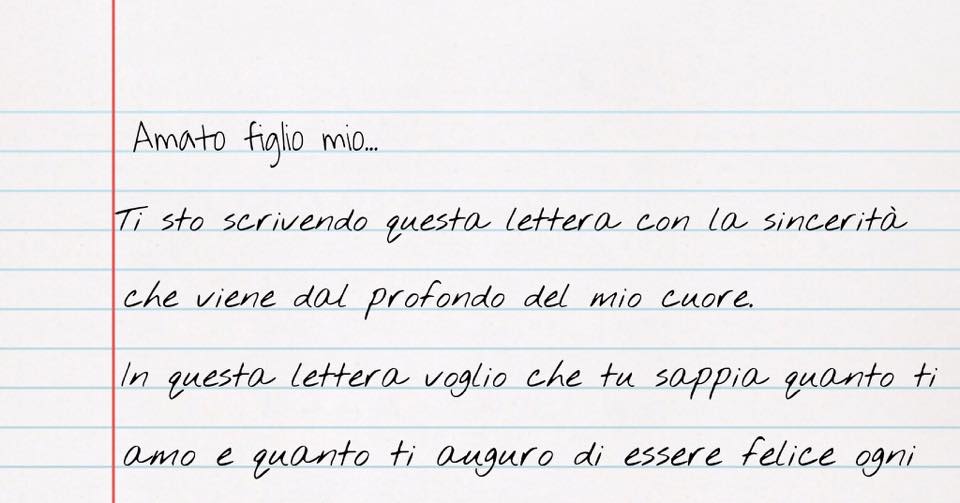 Amato figlio mio...
Ti sto scrivendo questa lettera con la sincerità
che viene dal profondo del mio cuore.
In questa lettera voglio che tu sappia quanto ti
amo e quanto ti auguro di essere felice ogni